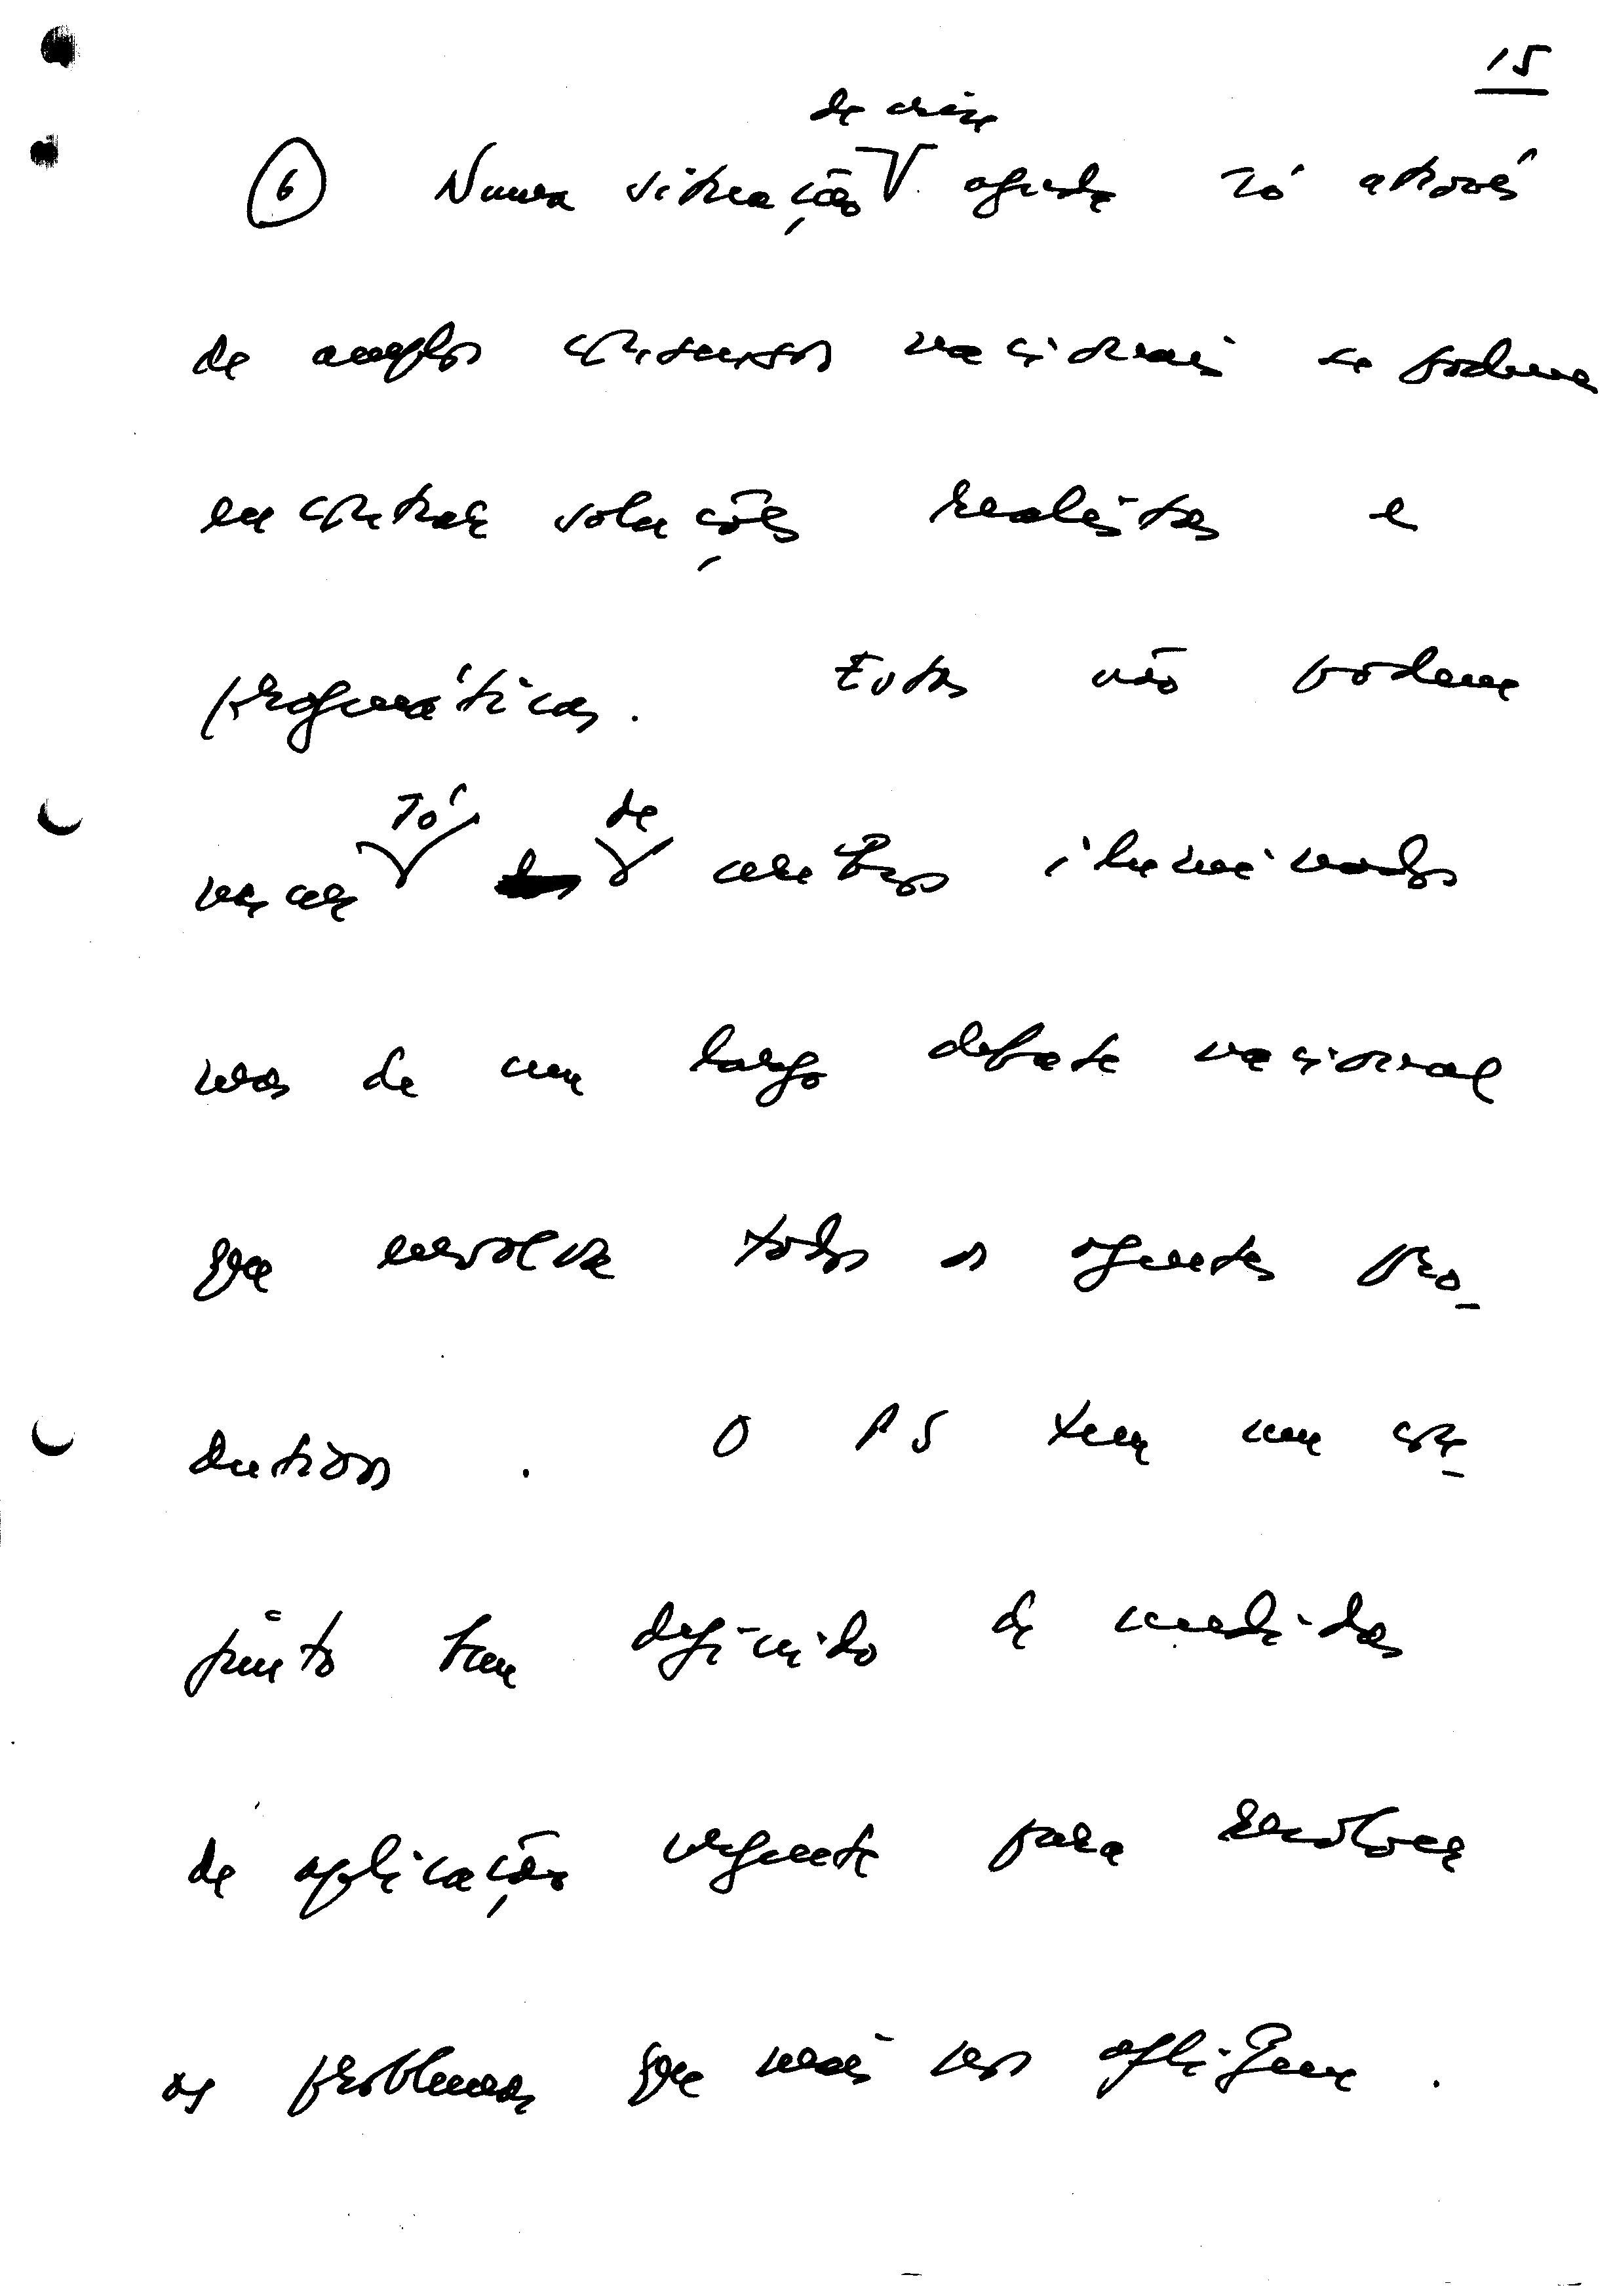 15
de crise
6 Numa situação aguda só através
de amplos consensos nacionais se podem
encontrar soluções realistas e
pragmáticas. Estas não podem
só de
nascer mentes iluminados
mas de um largo debate nacional
que envolva todos os agentes pro-
dutivos. O PS tem um con-
junto bem definido de medidas
de aplicação urgente para resolver
os problemas que mais nos afligem.